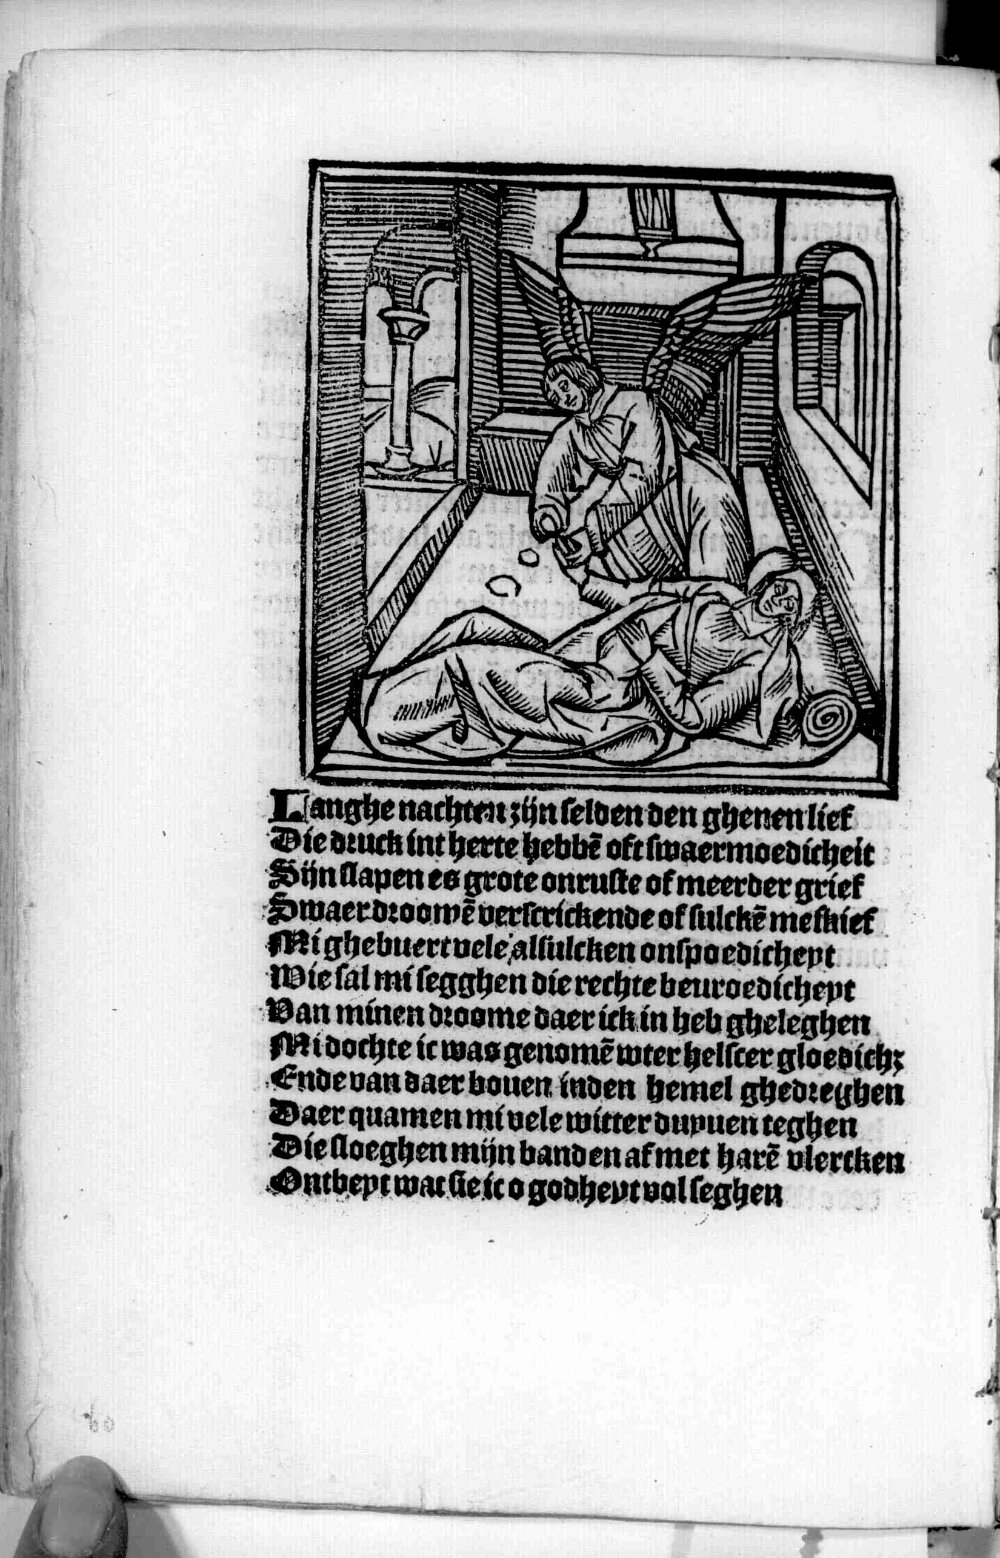 Langhe nachten zijn selden den ghenen lief
Die druck int herte hebbē oft swaermoedicheit
Sijn slapen es grote onruste of meerder grief
Swaer droomē verscrickende of sulckē meskief
Mi ghebuert vele alsulcken onspoedicheyt
Wie sal mi segghen die rechte beuroedicheyt
Van minen droome daer ick in heb gheleghen
Mi dochte ic was genomē wter helscer gloedichz
Ende van daer bouen inden hemel ghedreyhen
Daer quamen mi vele witter duyuen teghen
Die sloeghen mijn banden af met harē vlercken
Ontbeyt wat sie ic o godheyt vol seghen